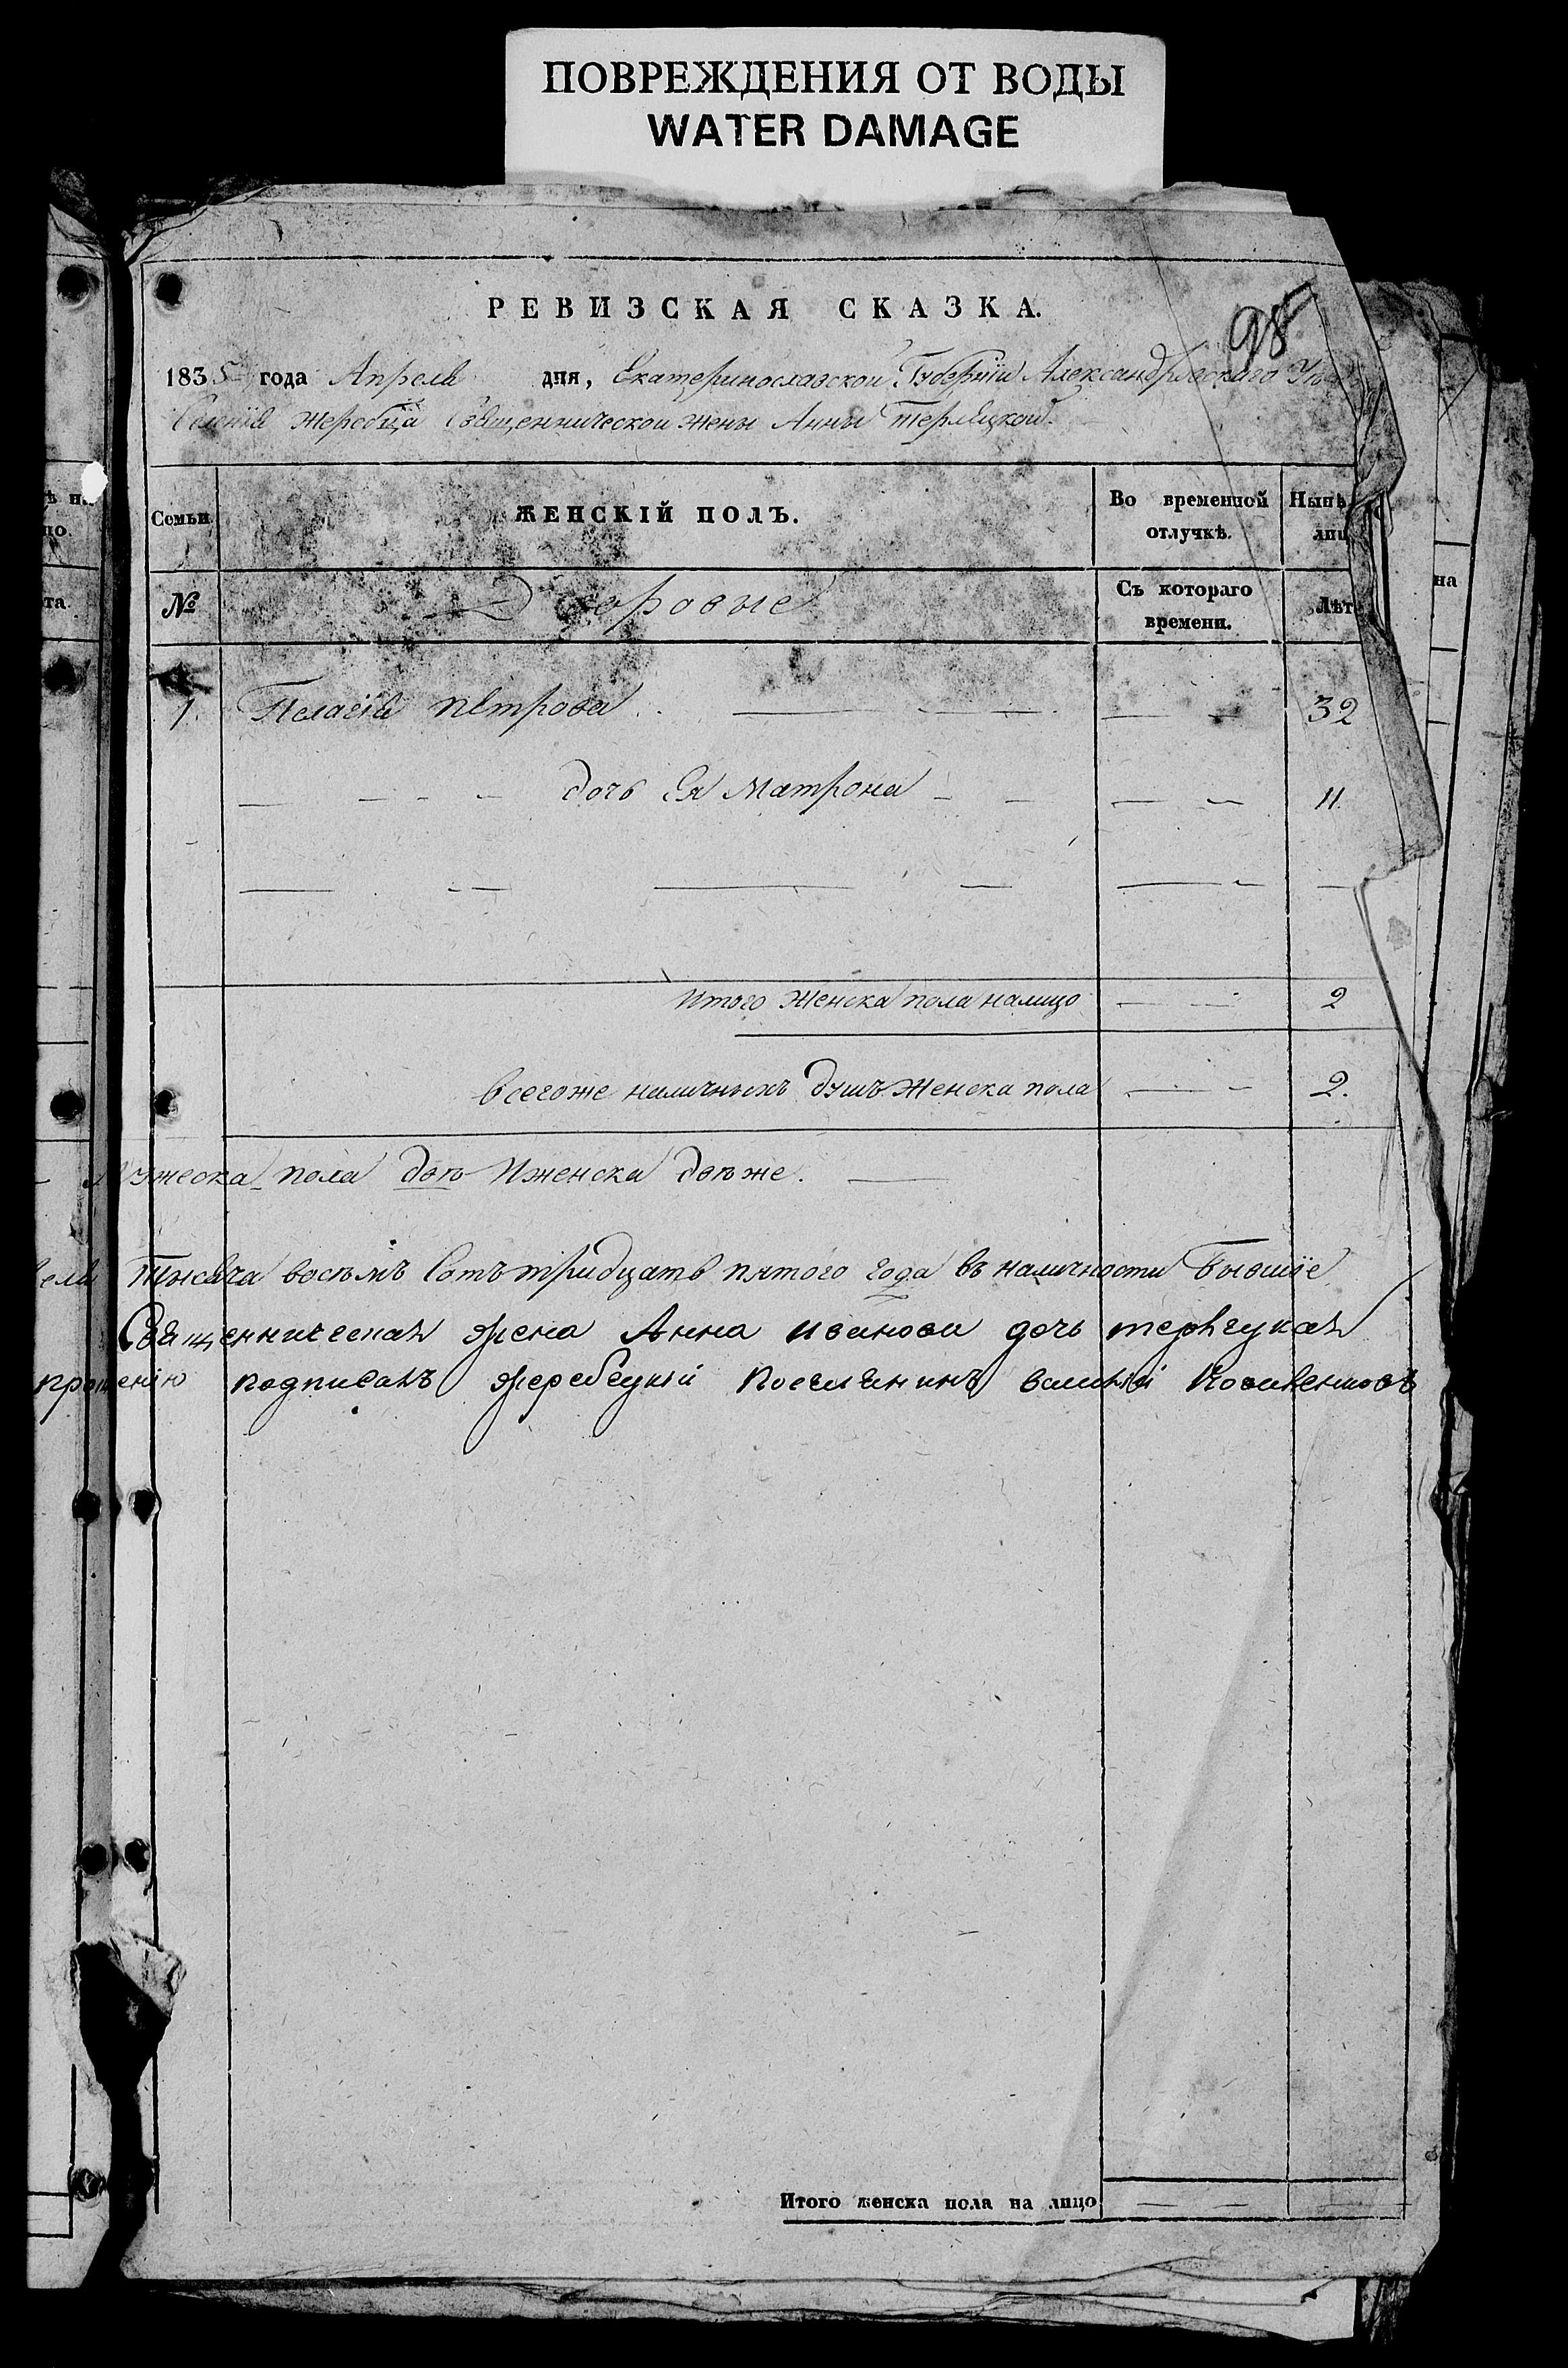 ПОВРЕЖДЕНИЯ ОТ ВОДЫ
WATER DAMAGE
РЕВИЗСКАЯ СКАЗКА.
98
1835 года Апреля дня, Екатеринославской Губернїи Александровскаго
Селенїя Жеребца Священнической жены Анны Терлецкой.
Семьи. ЖЕНСКІЙ ПОЛЪ. Во временной отлучкѣ.
№ Дворовые Съ котораго времени.
1. Пелагїя Петрова 32
дочь Ея Матрона 11.
Итого Женска пола налицо 2
Всегоже наличныхъ душъ Женска пола 2.
Мужеска пола Иженска
Тысяча восемъ Сотъ тридцать пятого года въ наличности Бывшїе
Священническая жена Анна Иванова дочь терлецкая
прошенію подписалъ жеребецкій Поселянинъ
Итого женска пола на лицо